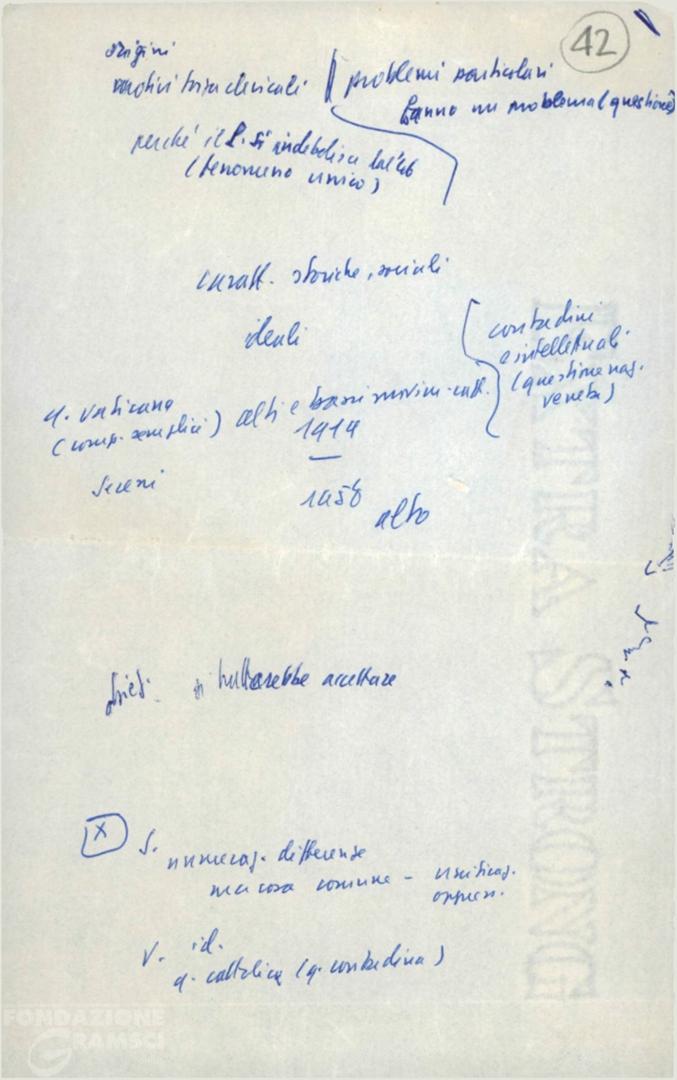 42
origini
motivi
problemi particolari
fanno un problema (questione)
perché il si indebolisce
(fenomeno unico)
caratt. storiche, sociali
ideali
contadini
e intellettuali
(questione naz.
veneta)
q. vaticana alti e bassi movim. catt.
(comp. semplici)
1919
Sereni
1958
alto
obiez. si tratterebbe accettare
X
S.
numeraz. differenze
ma cosa comune - unificaz.
oppress.
V. id.
q. cattolica (q. contadina)
EXTRA STRONG
FONDAZIONE
GRAMSCI